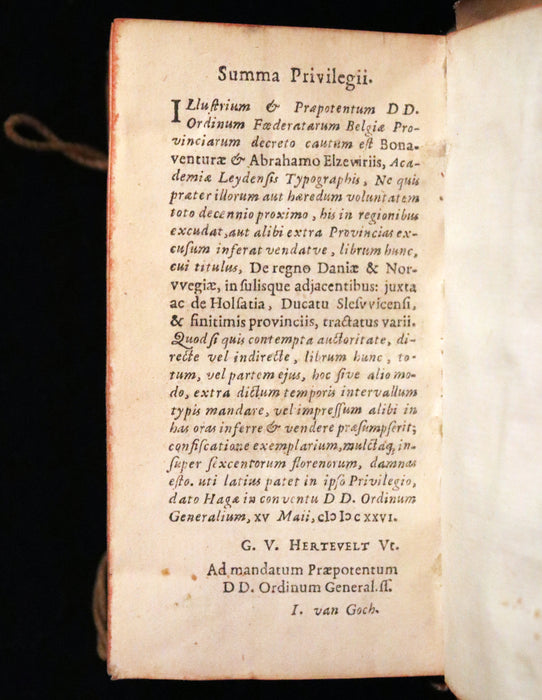 Summa Privilegii.
ILlustrium & Præpotentum DD.
Ordinum Fœderatarum Belgiæ Pro-
vinciarum decreto cautum est Bona-
venturæ & Abrahamo Elzeviriis, Aca-
demiæ Leydensis Typographis, Ne quis
præter illorum aut hæredum voluntatem
toto decennio proximo, his in regionibus
excudat, aut alibi extra Provincias ex-
cusum inferat vendatve, librum hunc,
cui titulus, De regno Daniæ & Nor-
vvegiæ, insulisque adjacentibus: juxta
ac de Holsatia, Ducatu Slesvvicensi,
& finitimis provinciis, tractatus varii.
Quod si quis contempta auctoritate, di-
recte vel indirecte, librum hunc, to-
tum, vel partem ejus, hoc sive alio mo-
do, extra dictum temporis intervallum
typis mandare, vel impressum alibi in
has oras inferre & vendere præsumpserit;
confiscatione exemplarium, mulctâq, in-
super sexcentorum florenorum, damnas
esto. uti latius patet in ipso Privilegio,
dato Hagæ in conventu DD. Ordinum
Generalium, XV Maii, cIↄ Iↄ CXXVI.
G. V. HERTEVELT Vt.
Ad mandatum Præpotentum
DD. Ordinum General. ss.
I. van Goch.